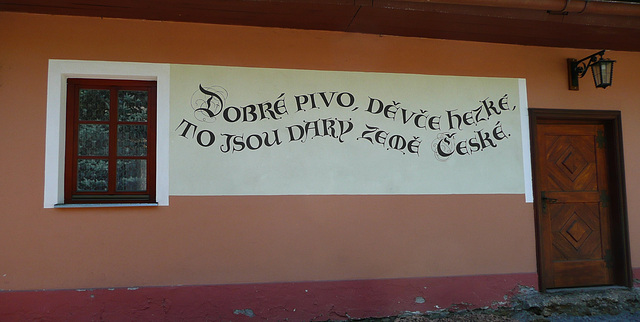 Dobré pivo, děvče hezké,
to jsou dary země České.